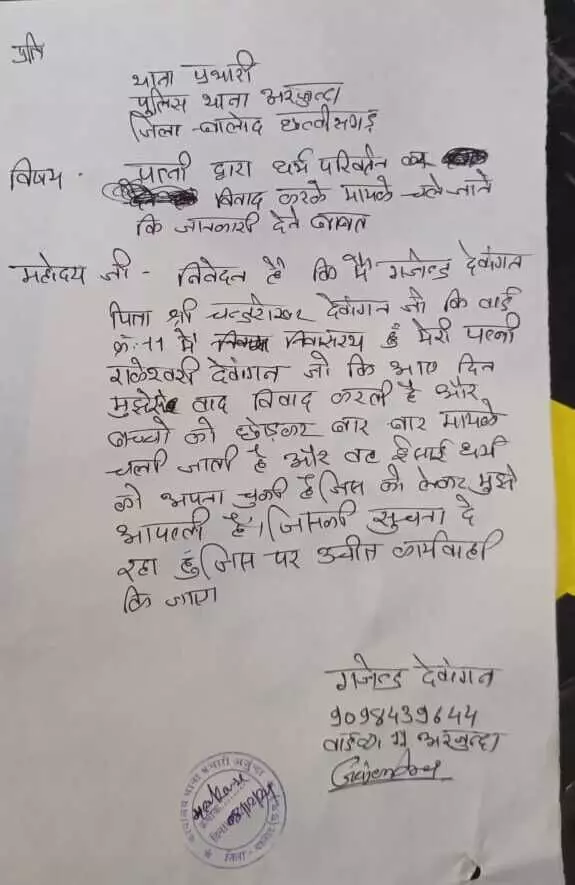 प्रति
थाना प्रभारी
पुलिस थाना अरजुन्दा
जिला - बालोद छत्तीसगढ़
विषय - पत्नी द्वारा धर्म परिवर्तन कर
विवाद करके मायके चले जाने
कि जानकारी देने बाबत
महोदय जी - निवेदन है कि मैं गजेन्द्र देवांगन
पिता श्री चन्द्रशेखर देवांगन जो कि वार्ड
क्रं.-11 में निवासरथ हूं मेरी पत्नी
राकेश्वरी देवांगन जो कि आए दिन
मुझसे वाद विवाद करती है और
बच्चो को छोड़कर बार बार मायके
चली जाती है और वह ईसाई धर्म
को अपना चुकी है जिस को लेकर मुझे
आपत्ती है। जिसकी सुचना दे
रहा हूं जिस पर उचीत कार्यवाही
कि जाए
गजेन्द्र देवांगन
9098439644
वार्ड क्र. 11 अरजुन्दा
Gajendra
कार्यालय थाना प्रभारी अर्जुन्दा
08/12/24
जिला - बालोद